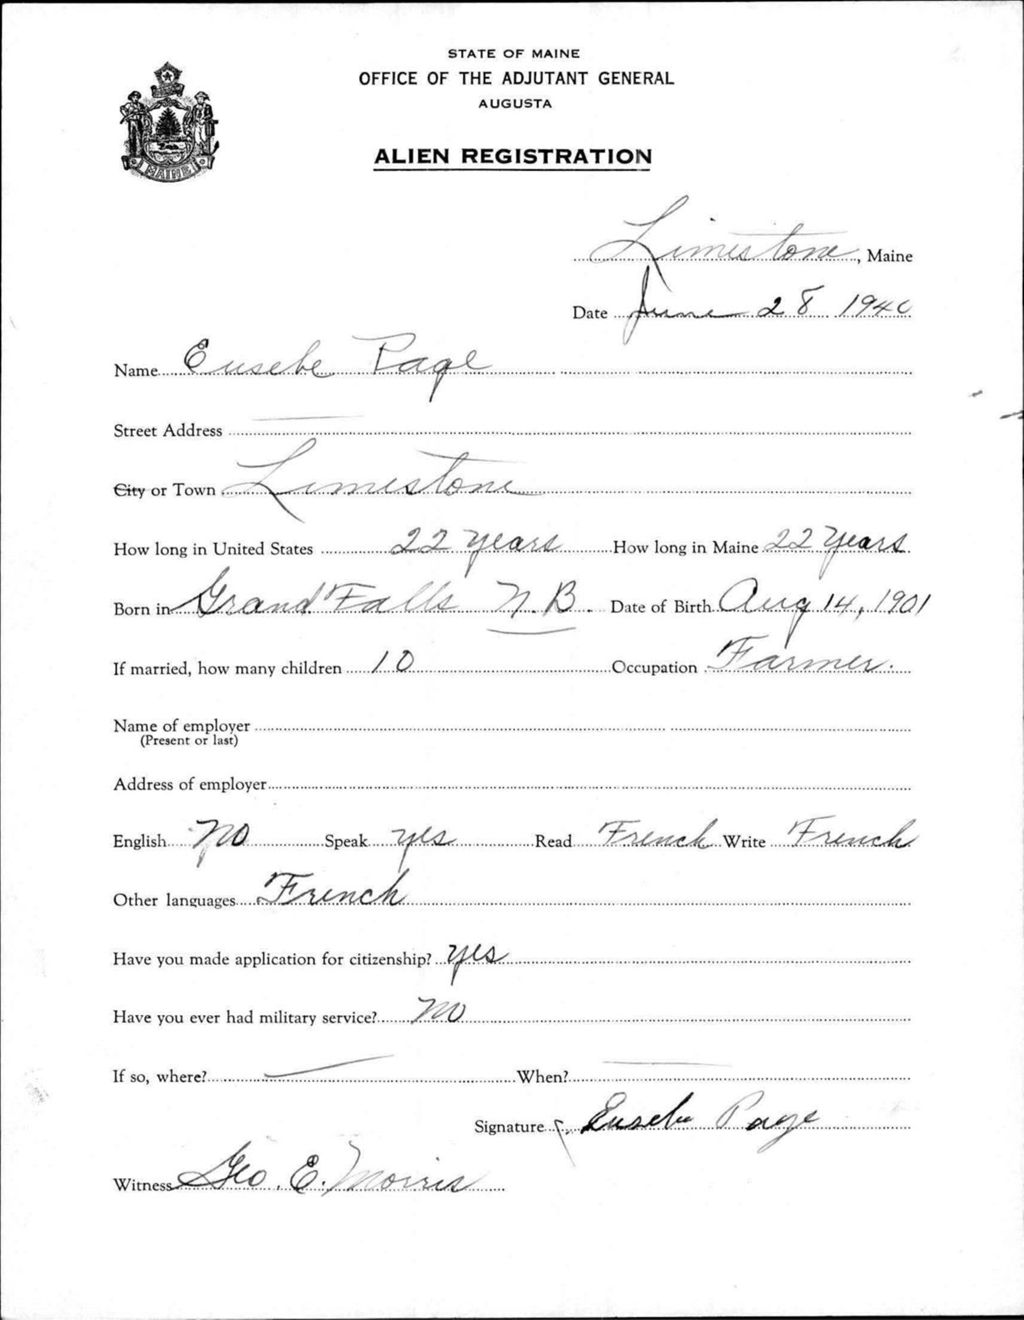 STATE OF MAINE
OFFICE OF THE ADJUTANT GENERAL
AUGUSTA
ALIEN REGISTRATION
MAINE
Limestone, Maine
Date June 28 1940
Name Eusebe Page
Street Address —
City or Town Limestone
How long in United States 22 years How long in Maine 22 years
Born in Grand Falls N.B. Date of Birth Aug 14, 1901
If married, how many children 10 Occupation Farmer.
Name of employer
(Present or last)
Address of employer
English No Speak yes Read French Write French
Other languages French
Have you made application for citizenship? yes
Have you ever had military service? no
If so, where? — When? —
Signature Eusebe Page
Witness Geo. E. Morris